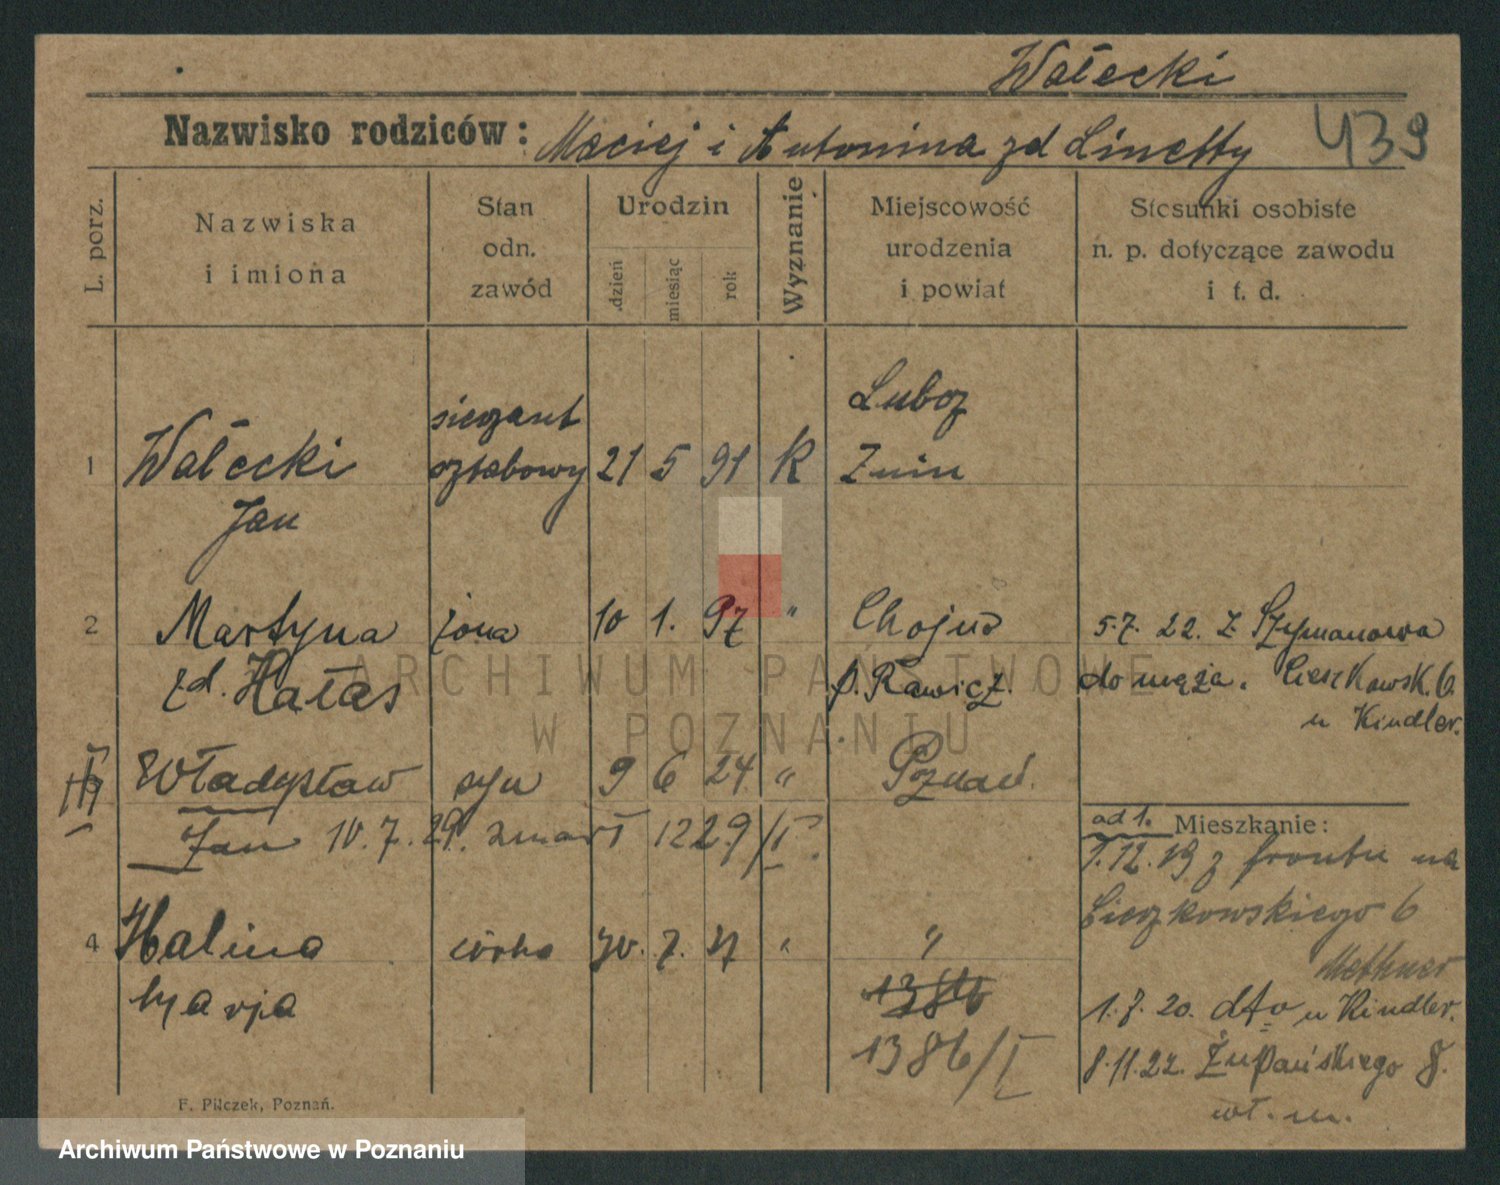 Wałecki
Nazwisko rodziców: Maciej i Antonina zd Linetty 439
L. porz.
Nazwiska
i imiona
Stan
odn.
zawód
Urodzin
dzień
miesiąc
rok
Wyznanie
Miejscowość
urodzenia
i powiat
Stosunki osobiste
n. p. dotyczące zawodu
i t. d.
1 Wałecki
Jan
sierżant
sztabowy
21 5 91 K
Znin
2 Martyna żona 10 1. 97 "
zd. Hałas
Chojno
p. Rawicz.
5.7. 22. z Szymanowa
do męża. Cieszkowsk. 6.
u Kindler.
Władysław syn 9 6 24 " Poznań.
Jan 10.7.29. zmarł 1229/I.
4 Halina córka 30. 7. 27 " "
Marja
1386
1386/I
od 1. Mieszkanie:
1.12.19 z frontu na
Cieszkowskiego 6
Methner
1.7.20. dto u Kindler.
8.11.22. Żupańskiego 8.
wł. m.
F. Pilczek, Poznań.
ARCHIWUM PAŃSTWOWE
W POZNANIU
Archiwum Państwowe w Poznaniu